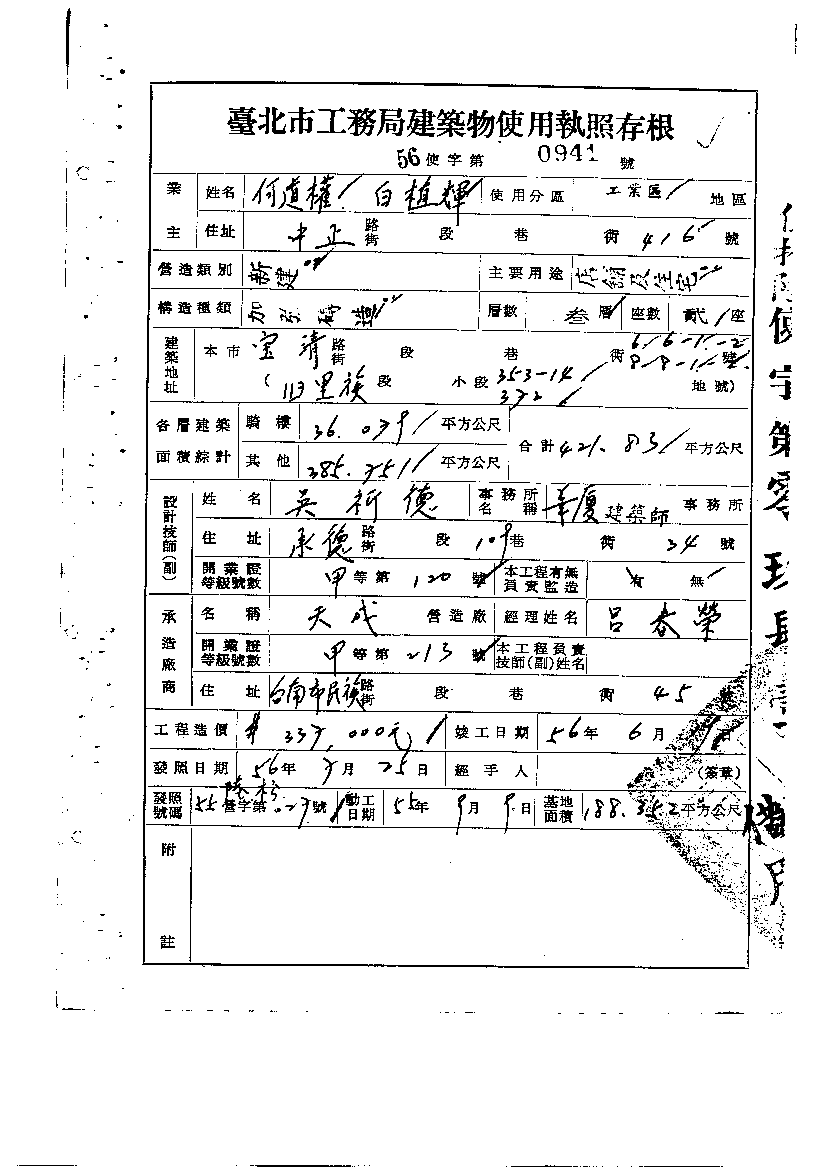 臺北市工務局建築物使用執照存根
56使字第 0941 號
業主 姓名 何道權 白植輝 使用分區 工業區 地區
住址 中正 路街 段 巷 街 416 號
營造類別 新建 主要用途 店鋪及住宅
構造種類 加強磚造 層數 叁層 座數 貳座
建築地址 本市 宝清 路街 段 巷 街 6-6-1-2 8-8-1-2 號
(旧里族段 小段 353-14 372 地號)
各層建築面積綜計 騎樓 36.079 平方公尺 合計 421.83 平方公尺
其他 385.751 平方公尺
設計技師(副) 姓名 吳祈德 事務所名稱 華厦建築師 事務所
住址 承德 路街 段 109巷 街 34 號
開業證等級號數 甲等第 120 號 本工程有無負責監造 有 無
承造廠商 名稱 天成 營造廠 經理姓名 呂春榮
開業證等級號數 甲等第 213 號 本工程負責技師(副)姓名
住址 台南市民族 路街 段 巷 街 45 號
工程造價 $ 337,000元 竣工日期 56年 6月 19日
發照日期 56年 7月 25日 經手人 (簽章)
發照號碼 55營字第 027號 動工日期 55年 9月 9日 基地面積 188.352平方公尺
附註